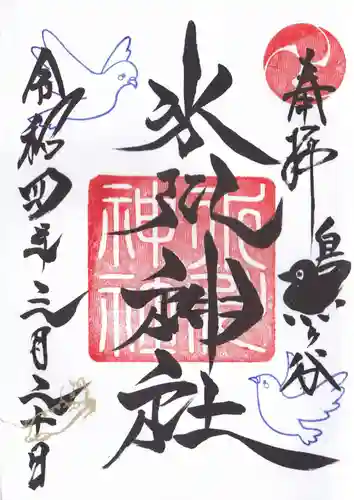 奉拝
鳩ヶ谷
氷川神社
氷川神社
令和四年三月二十日